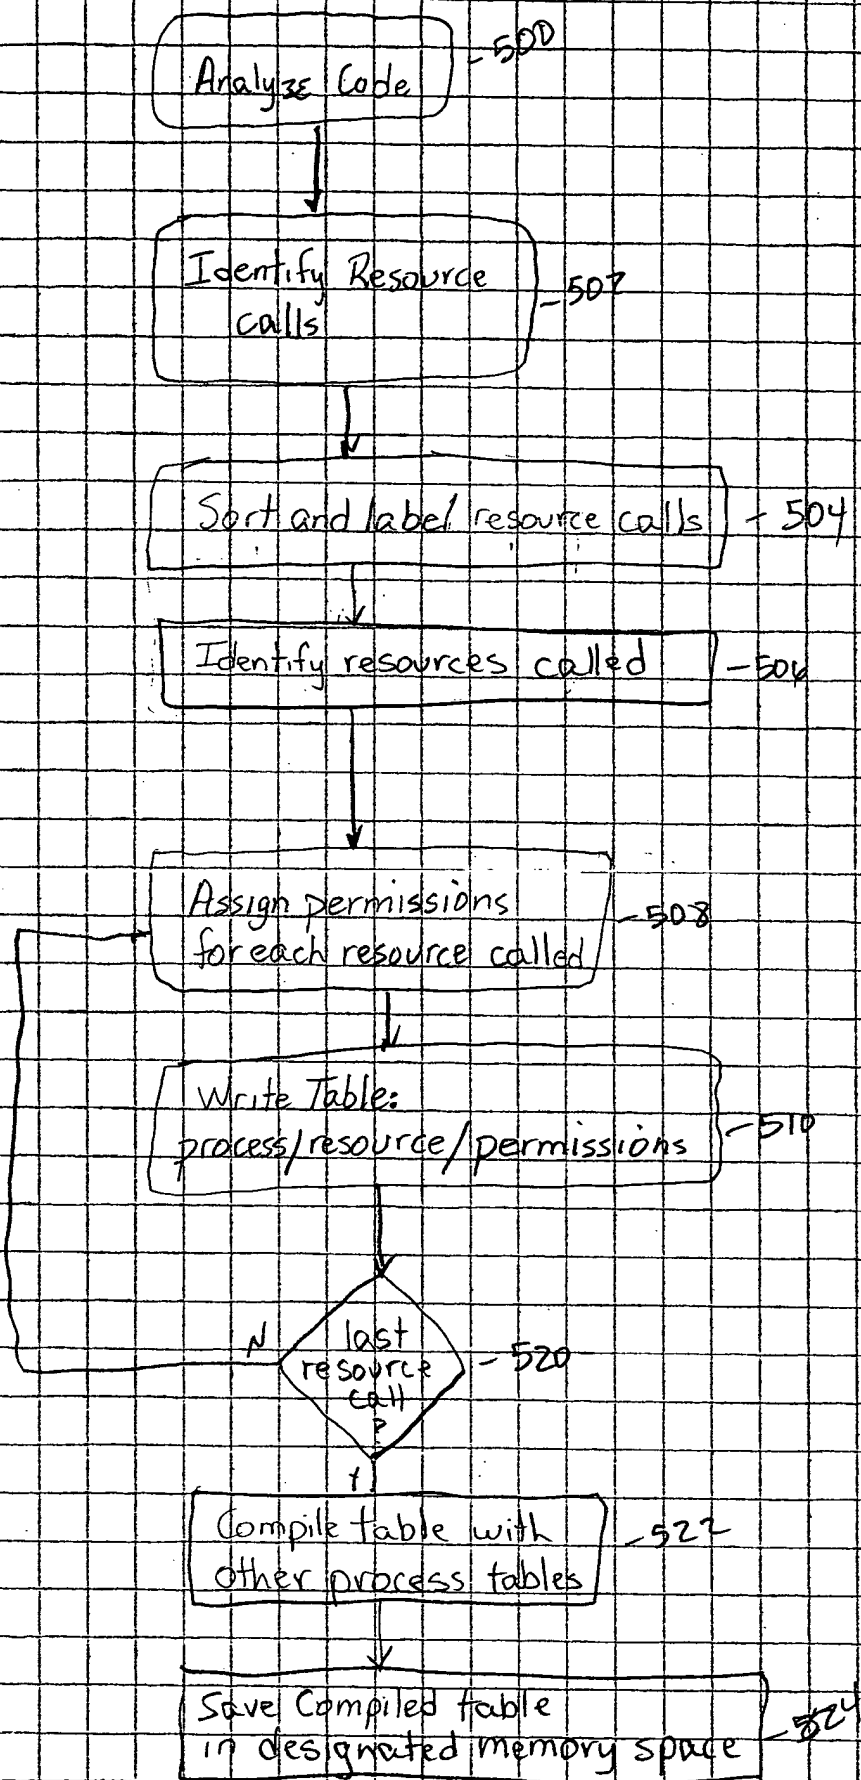 Analyze Code - 500
Identify Resource
calls - 502
Sort and label resource calls - 504
Identify resources called - 506
Assign permissions
for each resource called - 508
Write Table:
process/resource/permissions - 510
N
last
resource
call
? - 520
Y
Compile table with
other process tables - 522
Save Compiled table
in designated memory space - 524